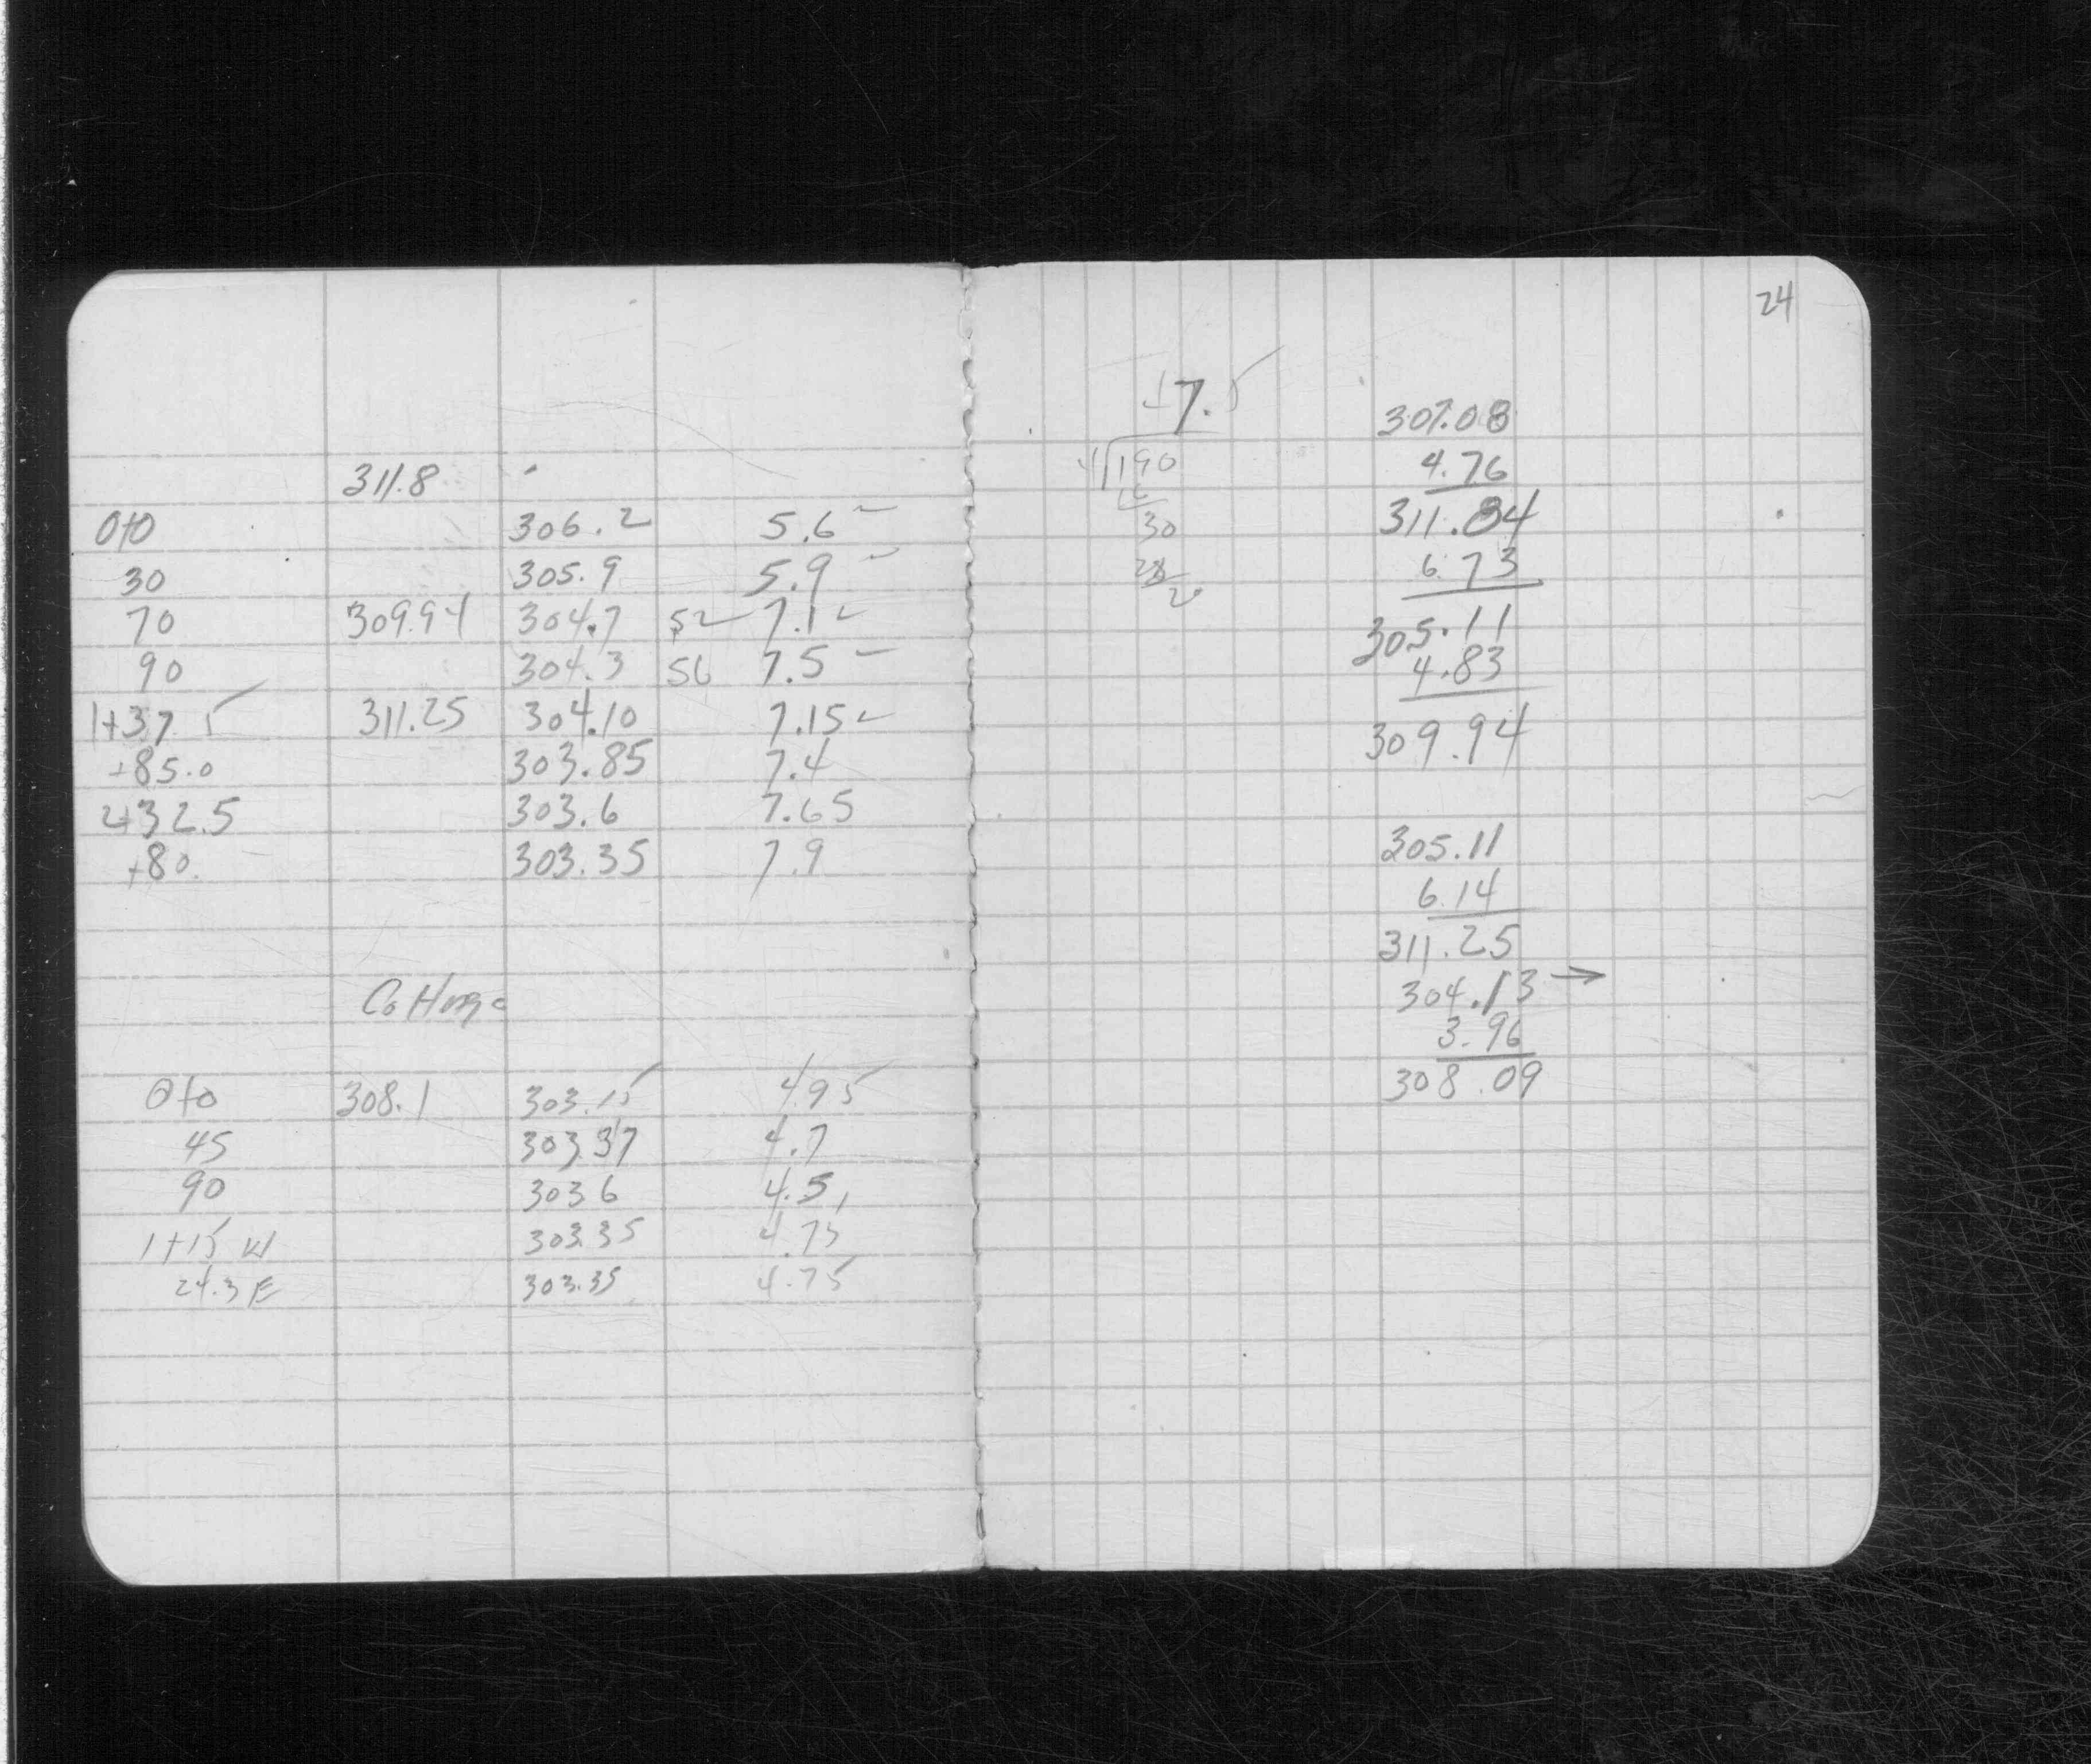 311.8
0+0 306.2 5.6
30 305.9 5.9
70 309.94 304.7 52 7.1
90 304.3 56 7.5
1+37.5 311.25 304.10 7.15
+85.0 303.85 7.4
2+32.5 303.6 7.65
+80. 303.35 7.9
Cottage
0+0 308.1 303.15 4.95
45 303.37 4.7
90 303.6 4.5
1+15 W 303.35 4.75
24.3 E 303.35 4.75
24
47.5
4 190
30
28
20
307.08
4.76
311.84
6.73
305.11
4.83
309.94
305.11
6.14
311.25
304.13 →
3.96
308.09